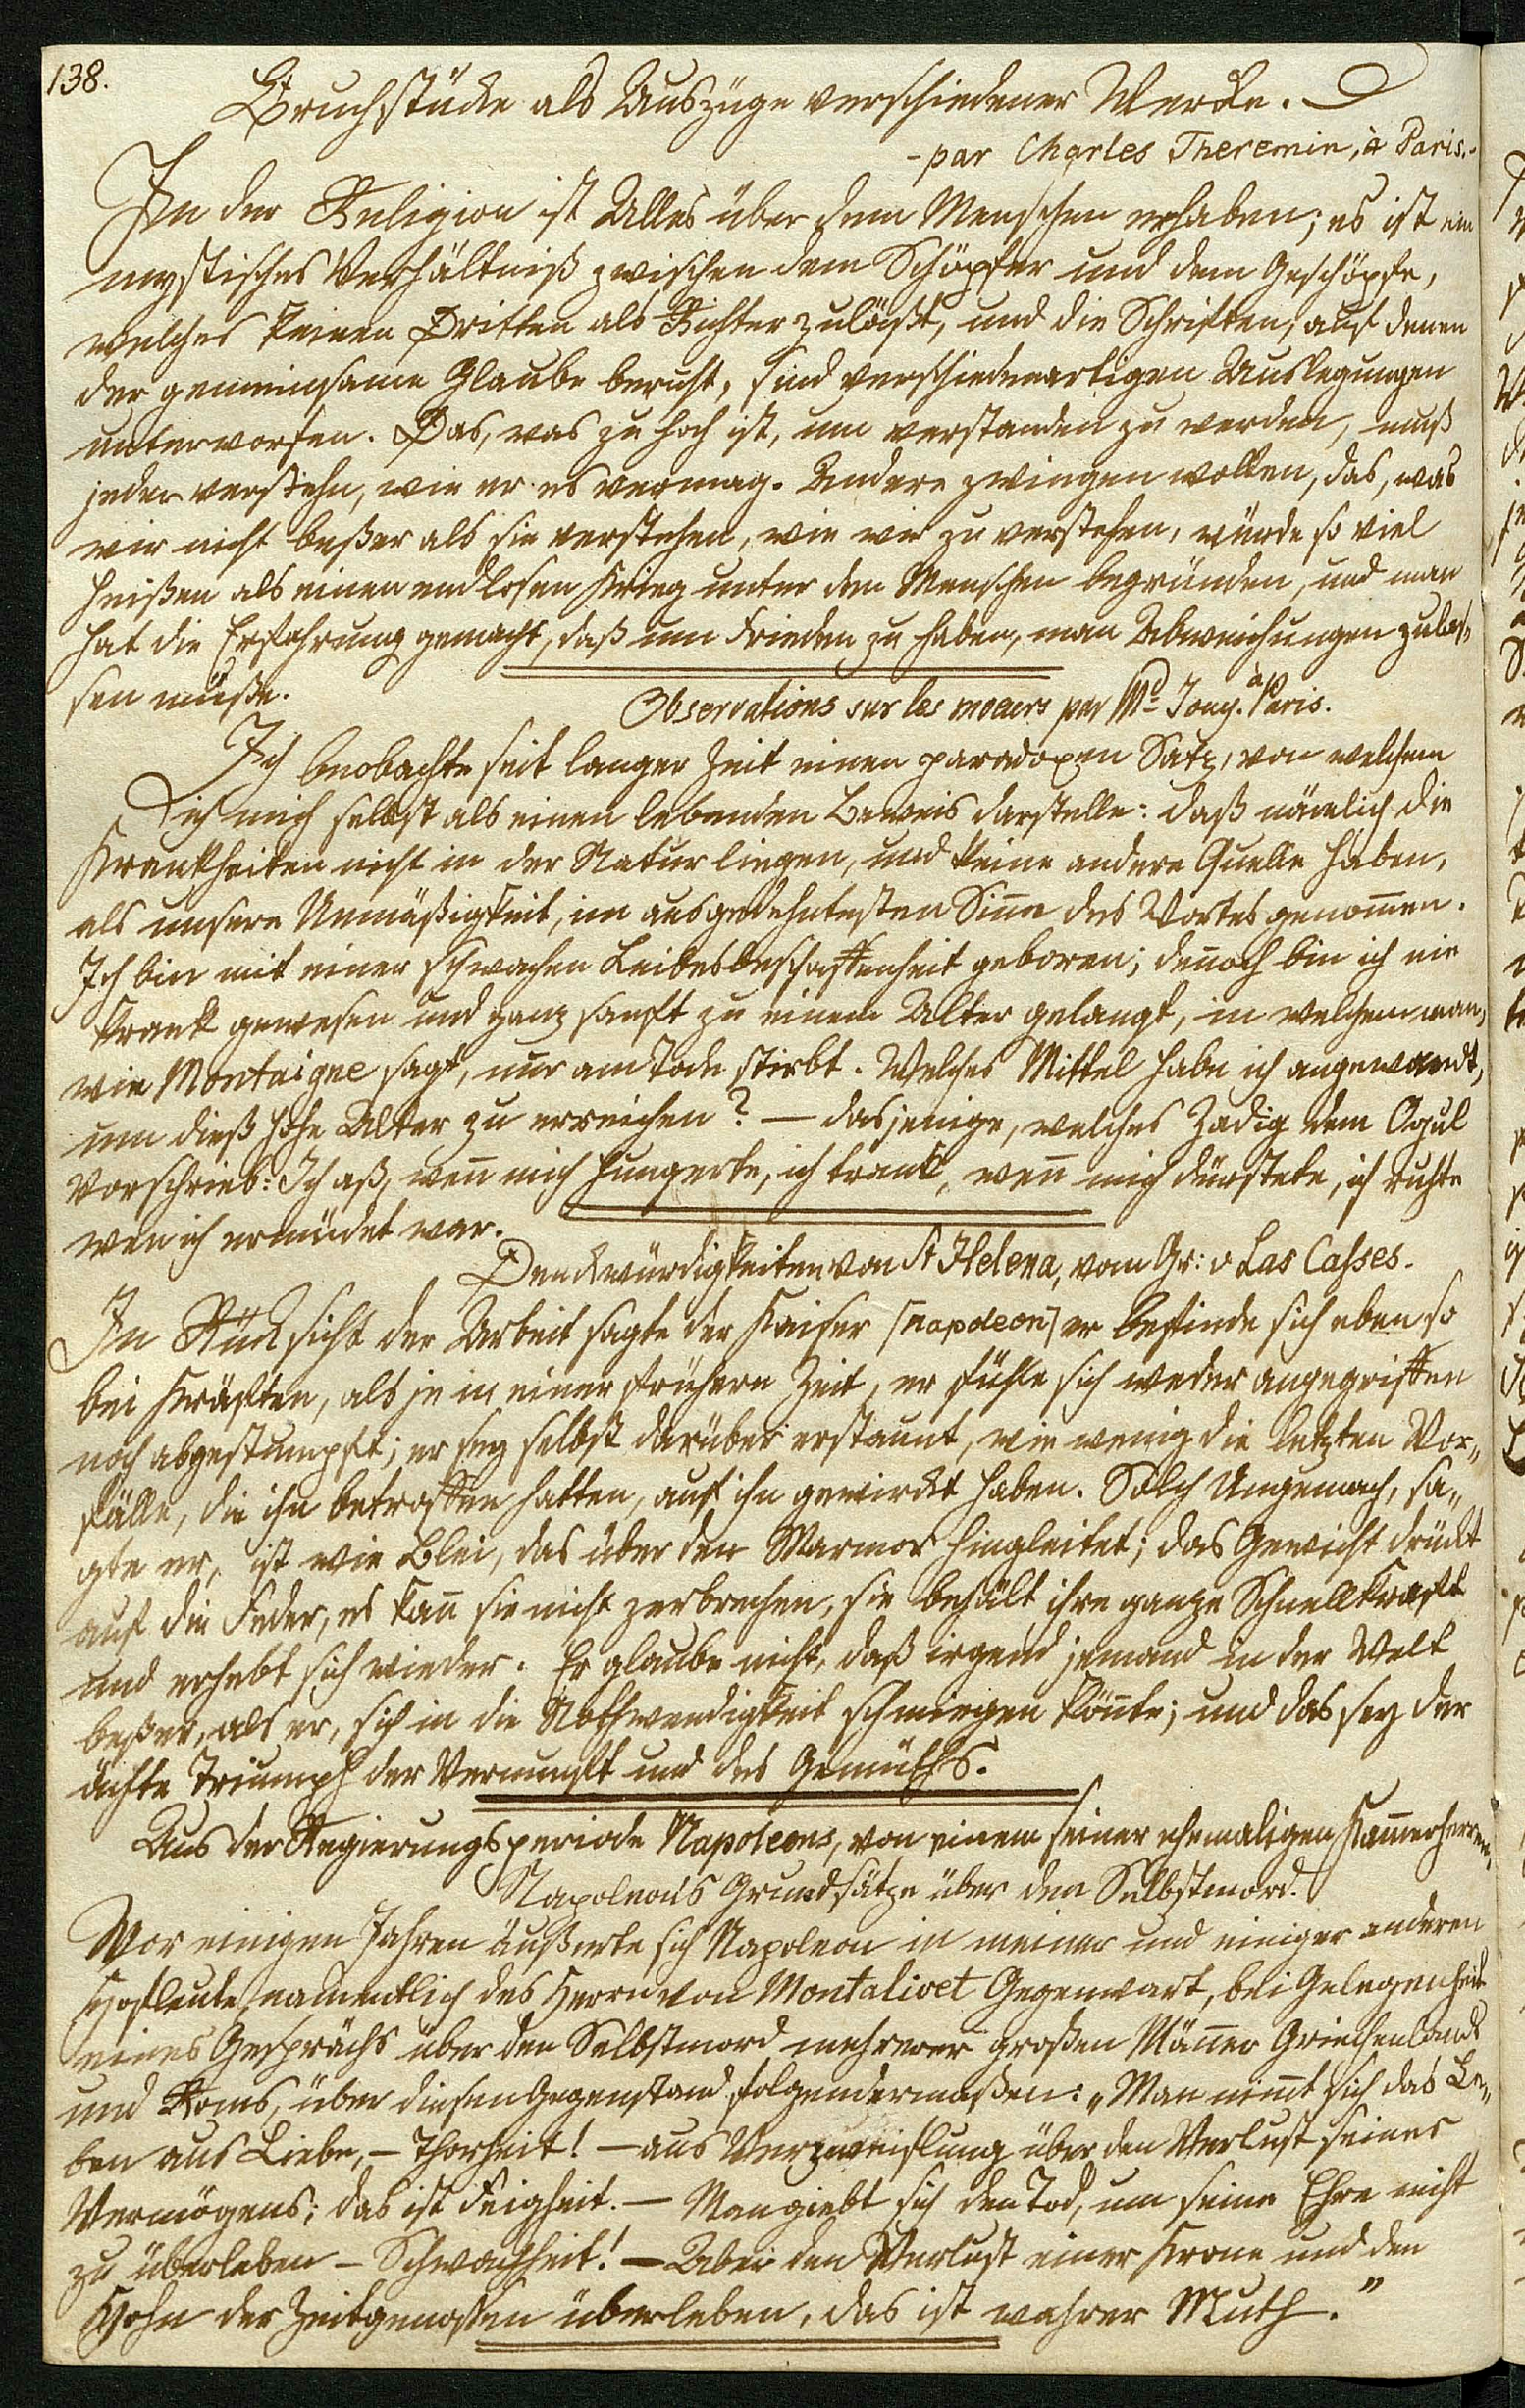 138.
Bruchstücke als Auszüge verschiedener Werke.
- par Charles Theremin, à Paris.-
In der Religion ist Alles über dem Menschen erhaben; es ist ein
mystisches Verhältniß zwischen dem Schöpfer und dem Geschöpfe,
welches keinen Dritten als Richter zuläßt, und die Schriften, auf denen
der gemeinsame Glaube beruht, sind verschiedenartigen Auslegungen
unterworfen. Das, was zu hoch ist, um verstanden zu werden, muß
jeder verstehn, wie er es vermag. Andere zwingen wollen, das, was
wir nicht beßer als sie verstehen, wie wir zu verstehen, würde so viel
heißen als einen endlosen Krieg unter den Menschen begründen, und man
hat die Erfahrung gemacht, daß um Frieden zu haben, man Abweichungen zulas„
sen müße.
Observations sur les moeurs par Md Jouy. à Paris.
Ich beobachte seit langer Zeit einen paradoxen Satz, von welchem
ich mich selbst als einen lebenden Beweis darstelle: daß nämlich die
Krankheiten nicht in der Natur liegen, und keine andere Quelle haben,
als unsere Unmäßigkeit, im ausgedehntesten Sinne des Wortes genom̄en.
Ich bin mit einer schwachen Leibesbeschaffenheit geboren; den̄och bin ich nie
krank gewesen und ganz sanft zu einem Alter gelangt, in welchem man,
wie Montaigne sagt, nur am Tode stirbt. Welches Mittel habe ich angewandt,
um dieß hohe Alter zu erreichen? — dasjenige, welches Zadig dem Ogul
vorschrieb: Ich aß, wen̄ mich hungerte, ich trank, wen̄ mich dürstete, ich ruhte
wen̄ ich ermüdet war.
Denckwürdigkeiten von St Helena, vom Gr: v Las Casses.
In Rücksicht der Arbeit sagte der Kaiser [Napoleon] er befinde sich eben so
bei Kräften, als je in einer frühern Zeit, er fühle sich weder angegriffen
noch abgestumpft; er sey selbst darüber erstaunt, wie wenig die letzten Vor„
fälle, die ihn betroffen hatten, auf ihn gewirckt haben. Solch Ungemach, sa„
gte er, ist wie Blei, das über den Marmor hingleitet; das Gewicht drückt
auf die Feder, es kan̄ sie nicht zerbrechen, sie behält ihre ganze Schnellkraft
und erhebt sich wieder. Er glaube nicht, daß irgend jemand in der Welt
beßer, als er, sich in die Nothwendigkeit schmiegen kön̄te; und das sey der
ächte Triumph der Vernunft und des Gemüths.
Aus der Regierungsperiode Napoleons, von einem seiner ehemaligen Kam̄erherren.
Napoleons Grundsätze über den Selbstmord.
Vor einigen Jahren äußerte sich Napoleon in meiner und einiger anderen
Hofleute, namentlich des Herrn von Montalivet Gegenwart, bei Gelegenheit
eines Gesprächs über den Selbstmord mehrerer großen Män̄er Griechenlands
und Roms, über diesen Gegenstand folgendermaßen: „Man nim̄t sich das Le„
ben aus Liebe, — Thorheit! — aus Verzweiflung über den Verlust seines
Vermögens; das ist Feigheit. — Man giebt sich den Tod, um seine Ehre nicht
zu überleben — Schwachheit! — Aber den Verlust einer Krone und den
Hohn der Zeitgenoßen überleben, das ist wahrer Muth."